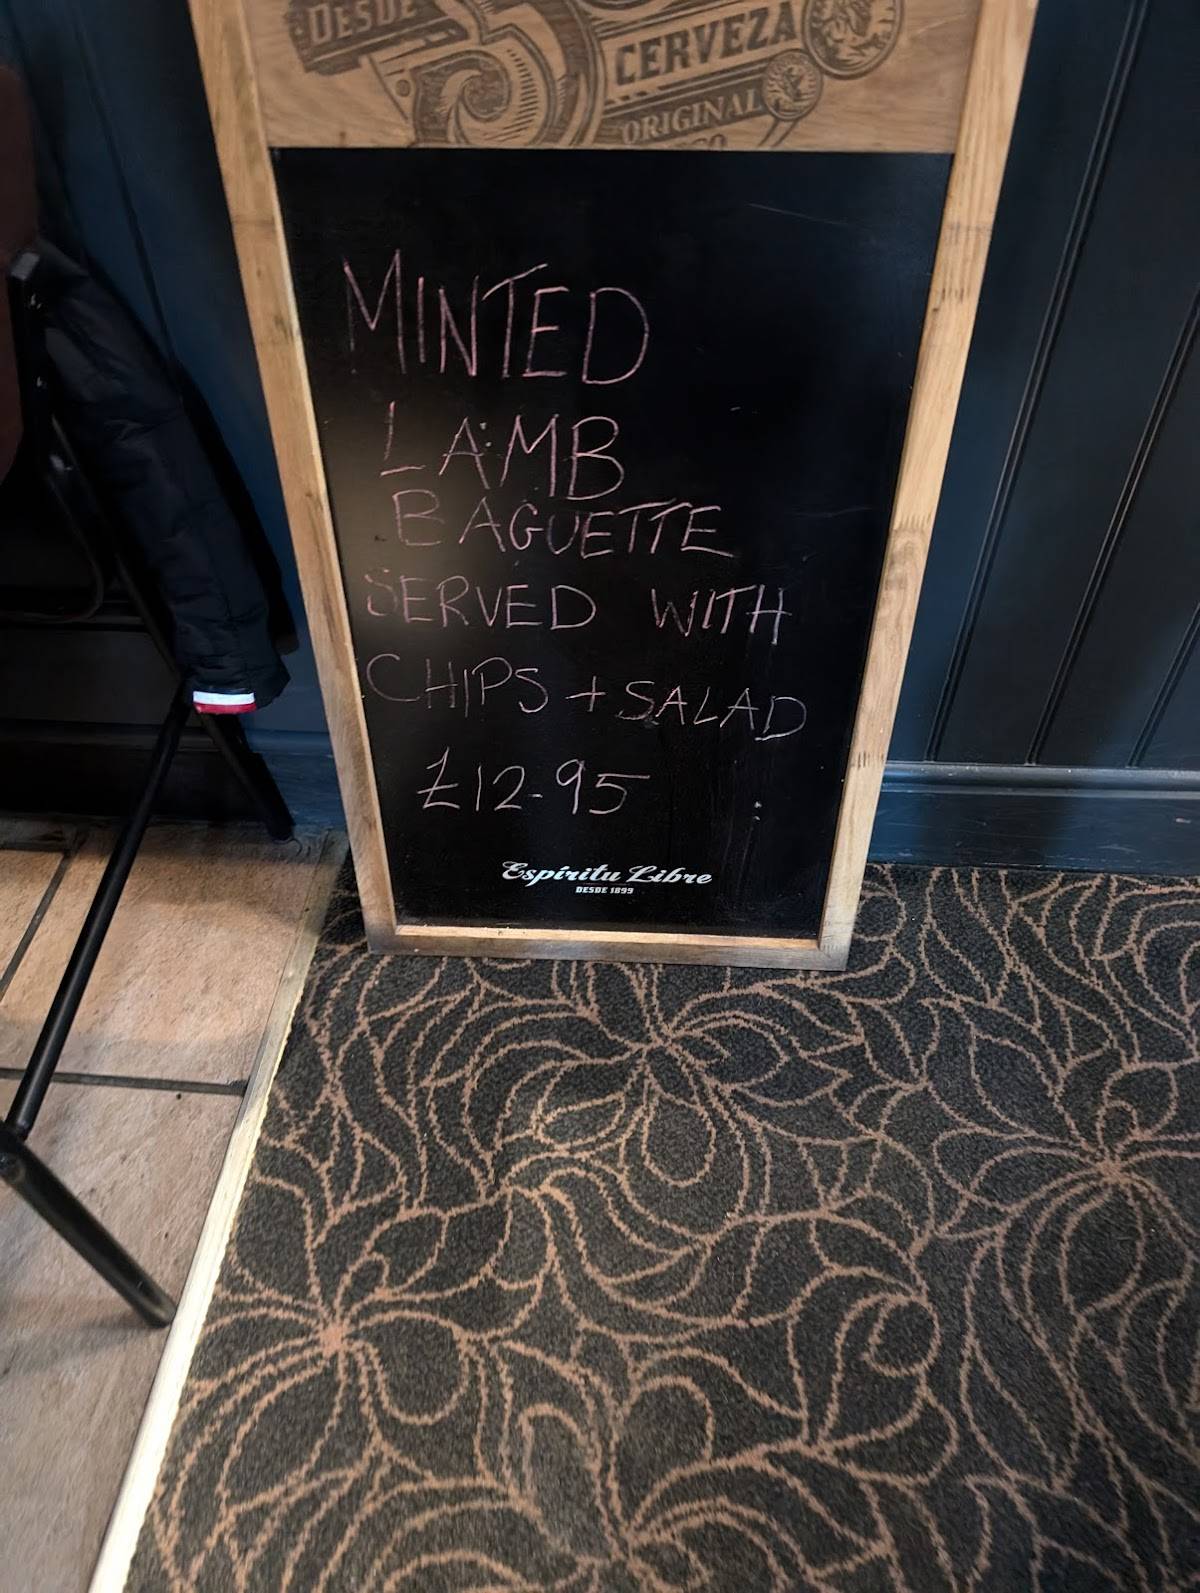 DESDE
CERVEZA
ORIGINAL
MINTED
LAMB
BAGUETTE
SERVED WITH
CHIPS + SALAD
£12-95
Espíritu Libre
DESDE 1899